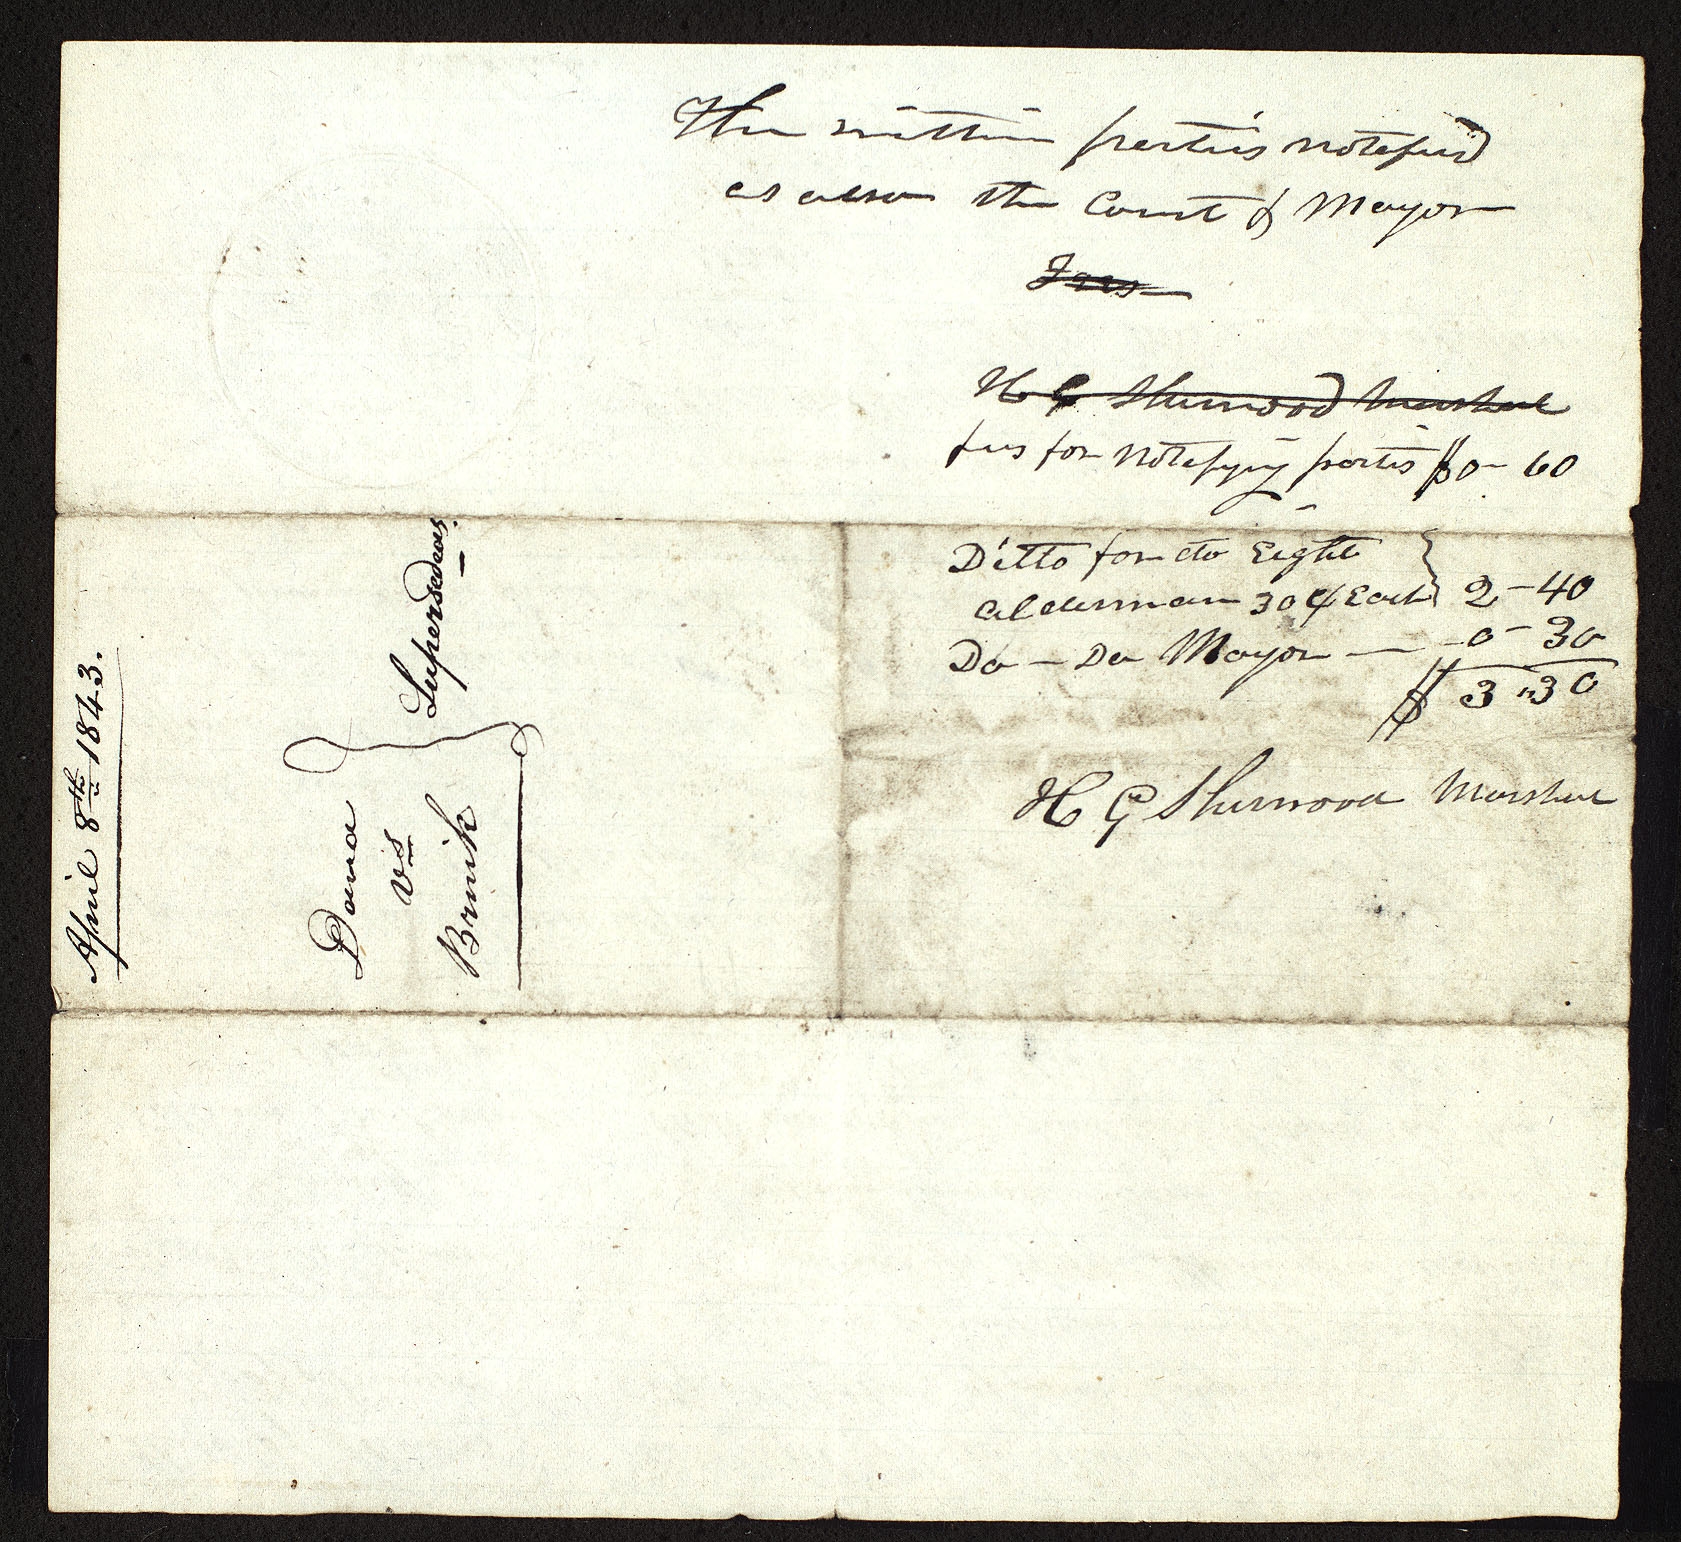 The within parties notefied
as also the Court & Mayor
Fees
H G Sherwood Marshal
fees for notefying parties $0- 60
Ditto for do Eight
Alderman 30 ¢ Each } 2-40
Do - Do Mayor — -0-30
$ 3 "30
H G Sherwood Marshal
April 8th 1843.
Dana
vs
Brink
Supersedeas.